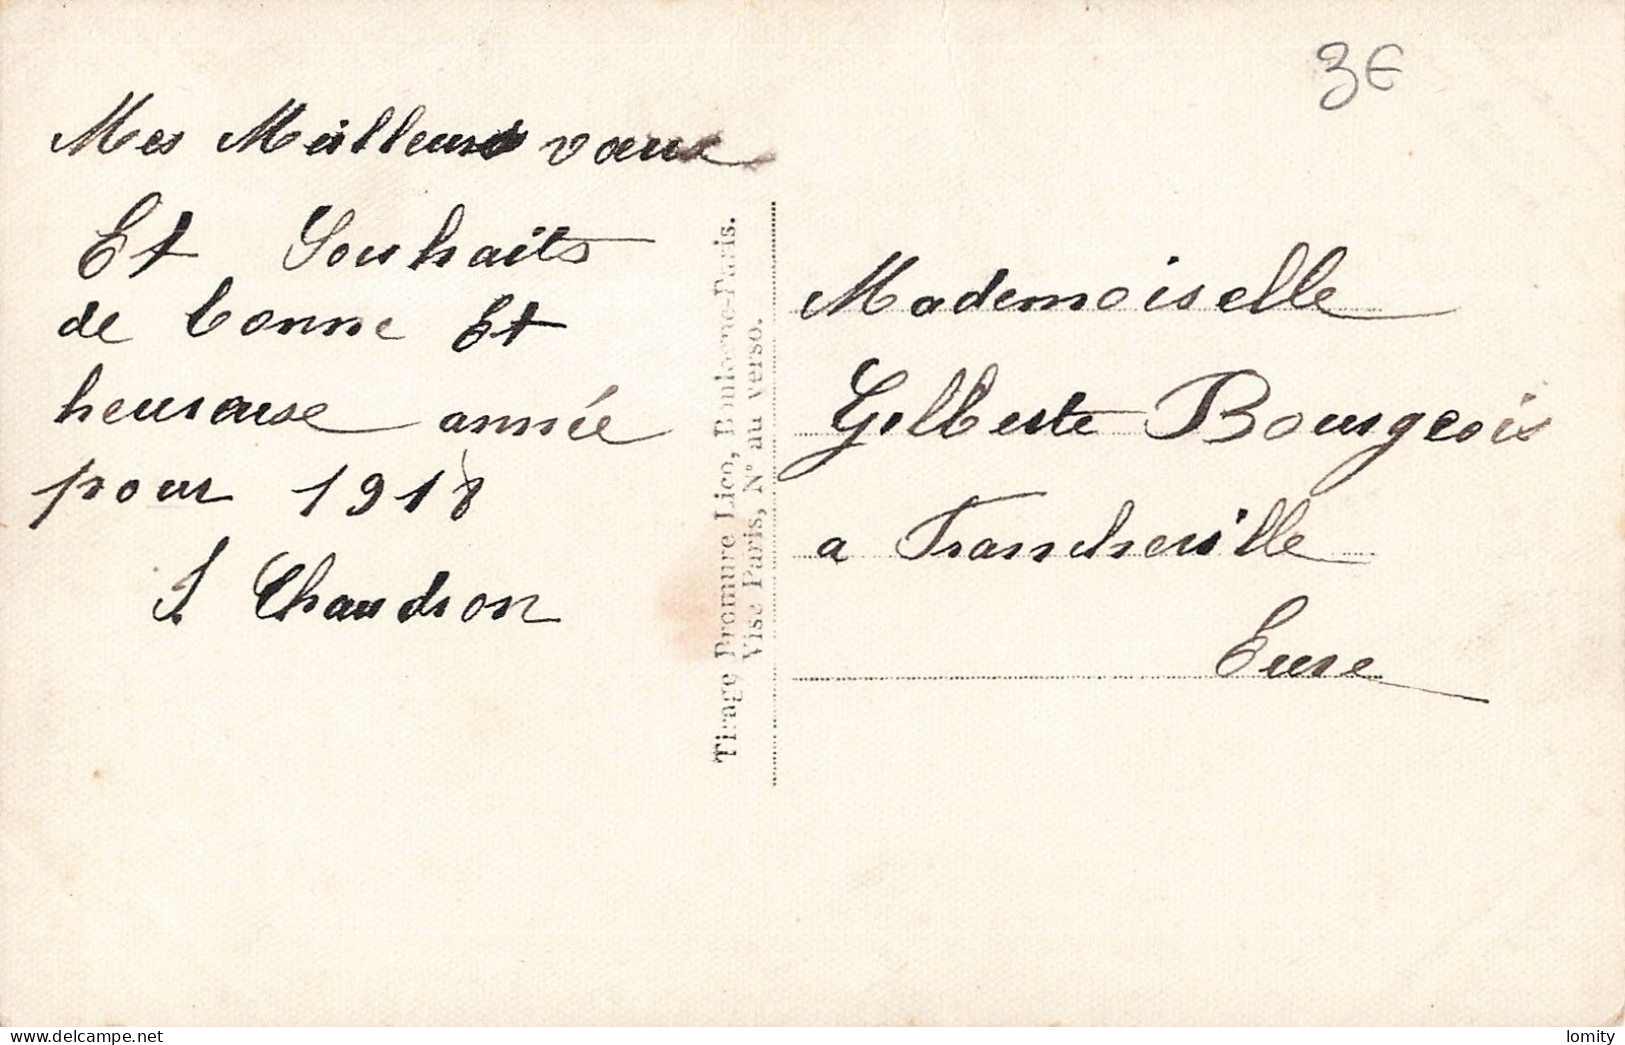 3€
Mes Meilleurs vœux
Et Souhaits
de bonne Et
heureuse année
pour 1918
J Chaudron
Tirage Bromure Lico, Boulogne-Paris.
Visé Paris, N° au verso.
Mademoiselle
Gilberte Bourgeois
a Francheville
Eure
delcampe.net
lomity